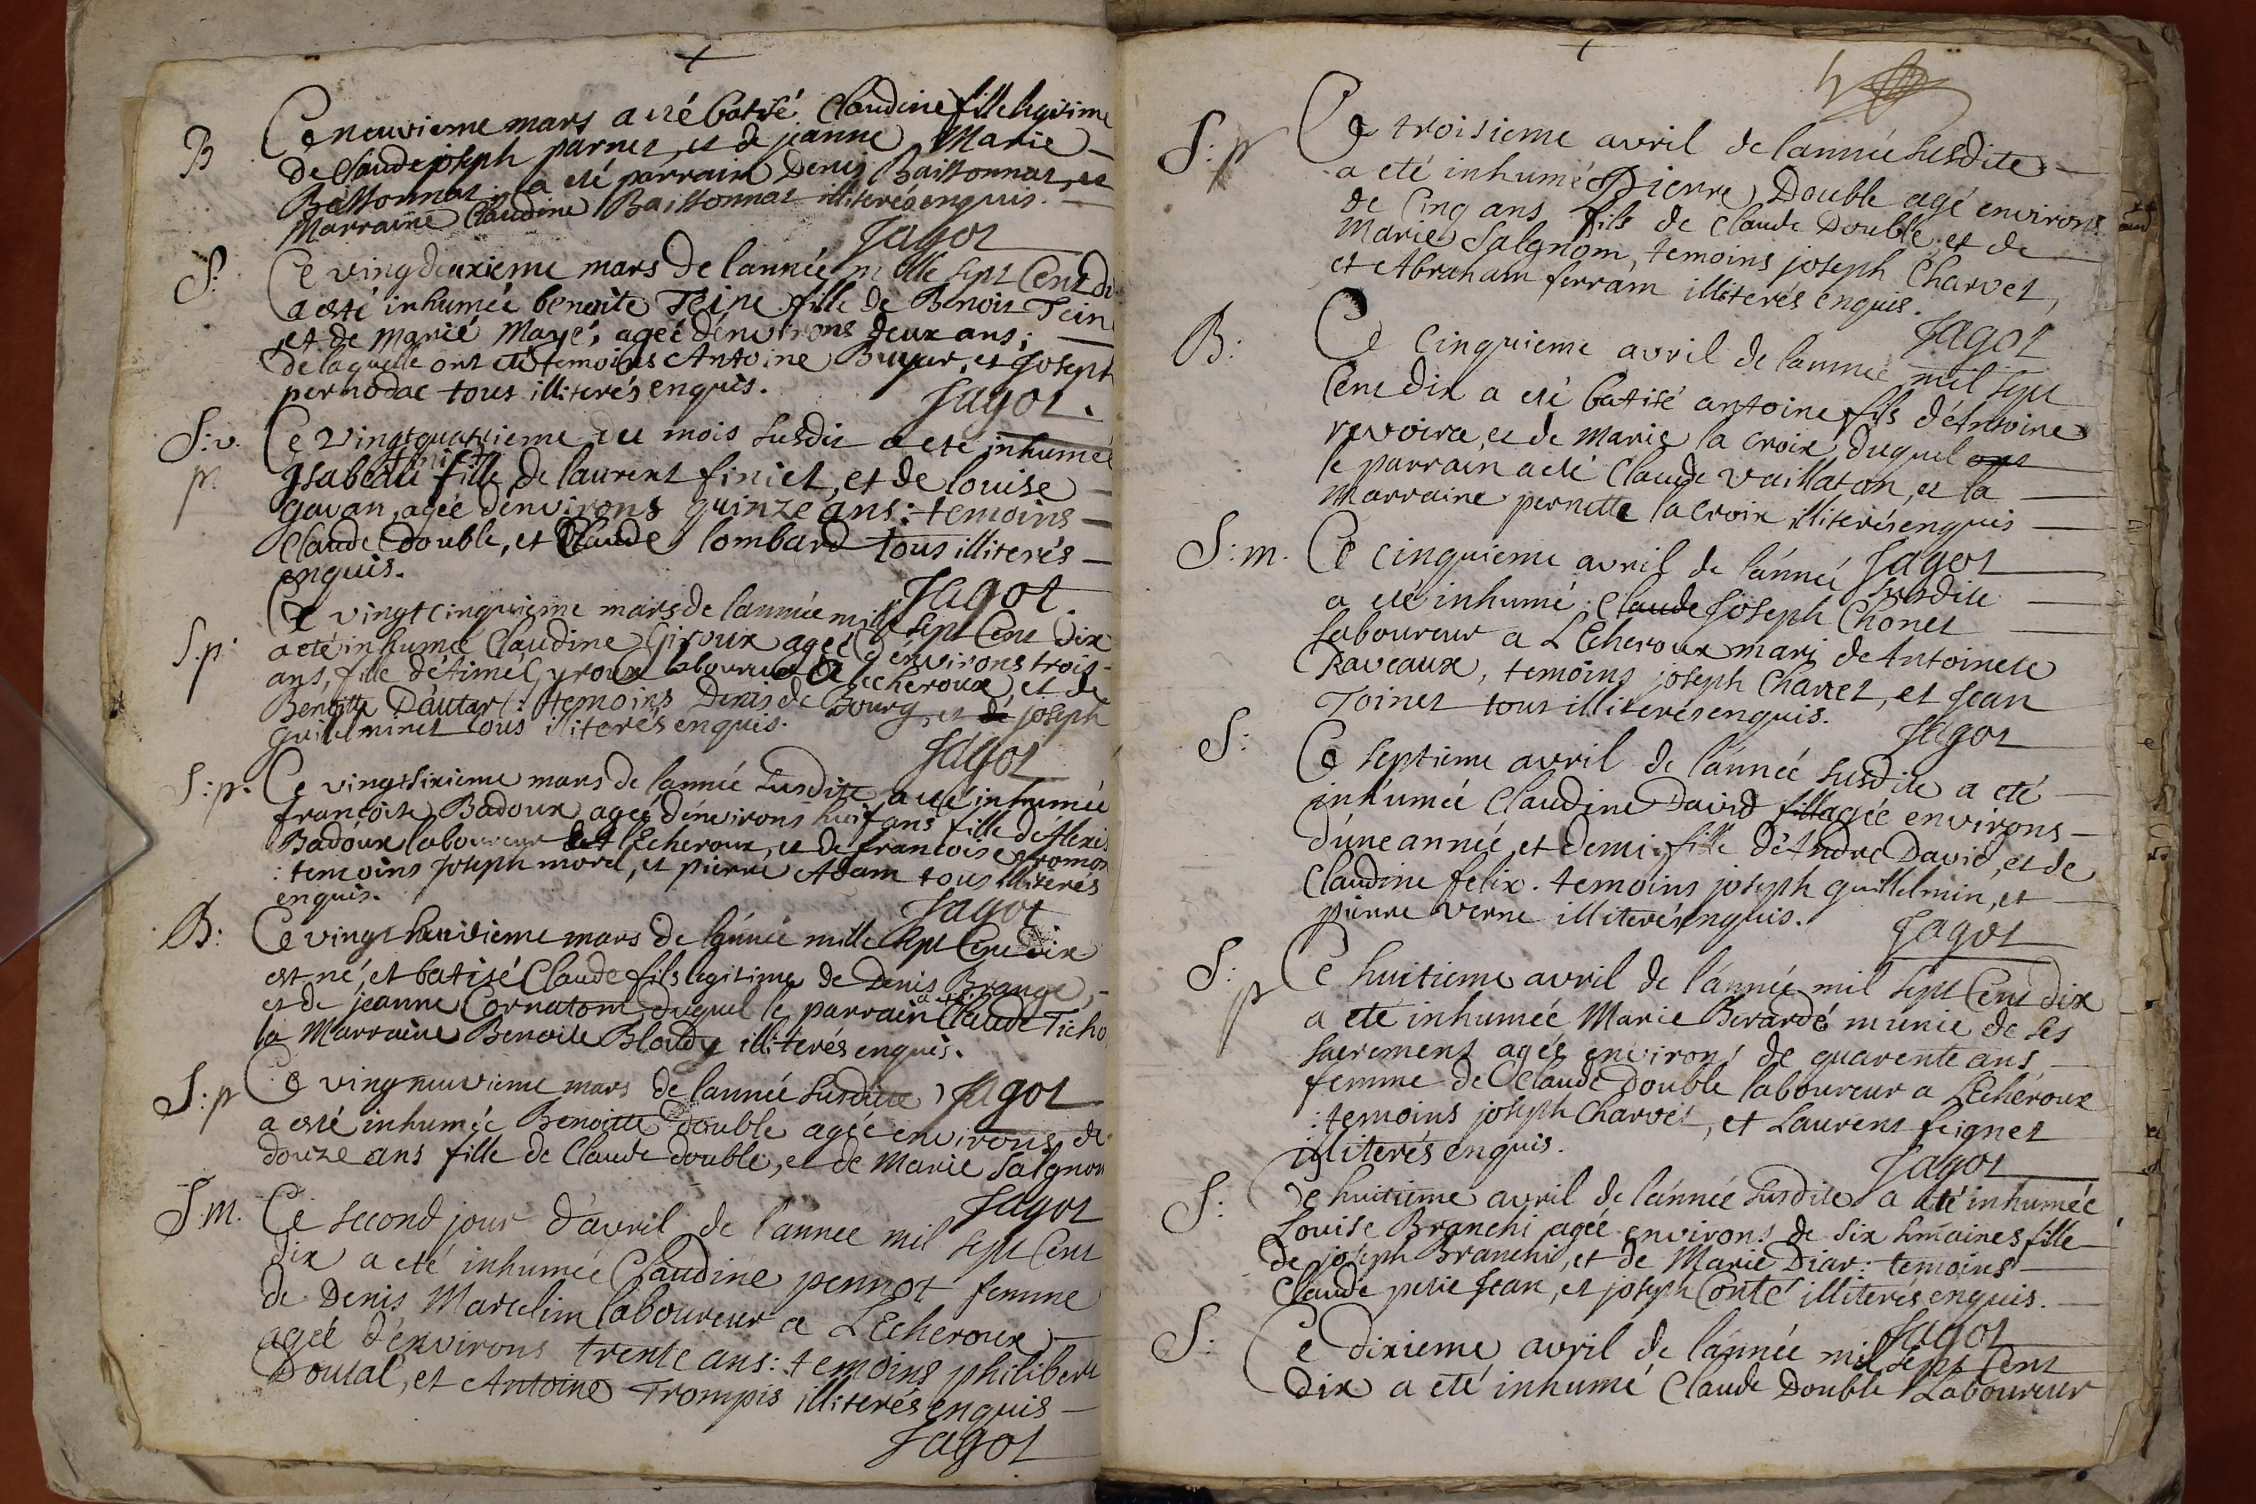 B
Ce neuvieme mars a eté batisé Claudine fille legitime
de Claude joseph parnet, et de jeanne Marie
Baissonnat a eté parrain Denis Baissonnat, et
Marraine Claudine Baissonnat illiterés enquis.
Jagot
S:
Ce vingdeuxieme mars de l'année mille sept Cent di
a esté inhumée benoite Teine fille de Benoit Tein
et de Marie Mayé, ageé d'environs deux ans;
de laquelle ont eté temoins Antoine Buyar, et Joseph
pernodac tous illiterés enquis.
Jagot.
S:v.
p.
Ce vingtquatrieme du mois susdit a eté inhumée
Isabeau finiet fille de laurent finiet, et de louise
gavan, ageé d'environs quinze ans: temoins
Claude Double, et Claude lombard tous illiterés
enquis.
Jagot.
S.p.
Ce vingtcinquieme mars de l'année mille sept Cent Dix
a eté inhumeé Claudine Giroux ageé d'environs trois
ans, fille d'étimé Gyroux laboureur a lecheroux, et de
Benoitte Dautar: temoins Denis de Bourg, et de joseph
guillminet tous illiterés enquis.
Jagot
S:p.
Ce vingtsixieme mars de l'année susdite a eté inhumée
francoise Badoux ageé d'environs huit ans fille d'Alexis
Badoux laboureur a l'Echeroux, et de francoise gromo
: temoins Joseph morel, et pierre Adam tous illiterés
enquis.
Jagot
B:
Ce vingt huitieme mars de l'année mille sept Cent dix
est né, et batisé Claude fils legitime de Denis Brange,
et de jeanne Cornaton, duquel le parrain a eté Claude Ticho
la Marraine Benoite Bloudy illiterés enquis.
Jagot
S:p
Ce vingneuvieme mars de l'année susdite
a esté inhumée Benoitte Double ageé environs de
douze ans fille de Claude double, et de Marie Salgnon
Jagot
S.M.
Ce second jour d'avril de l'année mil sept Cent
dix a eté inhumée Claudine pennot femme
de Denis Marcelin laboureur a L'Echeroux
ageé d'environs trente ans: temoins philibert
Doutal, et Antoine Trompis illiterés enquis
Jagot
S:p
Ce troisieme avril de l'année susdite
a eté inhumé Pierre Double agé environs
de Cinq ans fils de Claude Double, et de
Marie Salgnom, temoins joseph Charvet,
et Abraham ferram illiterés enquis.
Jagot
B:
Ce Cinquieme avril de l'année mil sept
Cent dix a eté batisé antoine fils d'Antoine
revoire, et de Marie la Croix duquel ont
le parrain a eté Claude Vaillaton, et la
Marraine pernette la Croix illiterés enquis
Jagot
S:m.
Ce Cinquieme avril de l'année susdite
a eté inhumé Claude Joseph Chonet
laboureur a L'Echeroux mari de Antoinete
Raveaux, temoins joseph Charvet, et Jean
Toinet tous illiterés enquis.
Jagot
S:
Ce septieme avril de l'année susdite a eté
inhumée Claudine David fill ageé environs
d'une année et demi fille d'Andre David, et de
Claudine felix. temoins joseph guillelmin, et
pierre verne illiterés enquis.
Jagot
S:
p
Ce huitieme avril de l'année mil sept Cent dix
a eté inhumée Marie Berardé munie de ses
sacrement ageé environs de quarente ans
femme de Claude Double laboureur a L'Echeroux
: temoins joseph Charvet, et Laurent feignet
illiterés enquis.
Jagot
S:
Ce huitieme avril de l'année susdite a eté inhumée
Louise Branchi ageé environs de six smaines fille
de joseph Branchi, et de Marie Diar: temoins
Claude petit Jean, et joseph Conté illiterés enquis.
Jagot
S:
Ce dixieme avril de l'année mil sept Cent
dix a eté inhumé Claude Double Laboureur